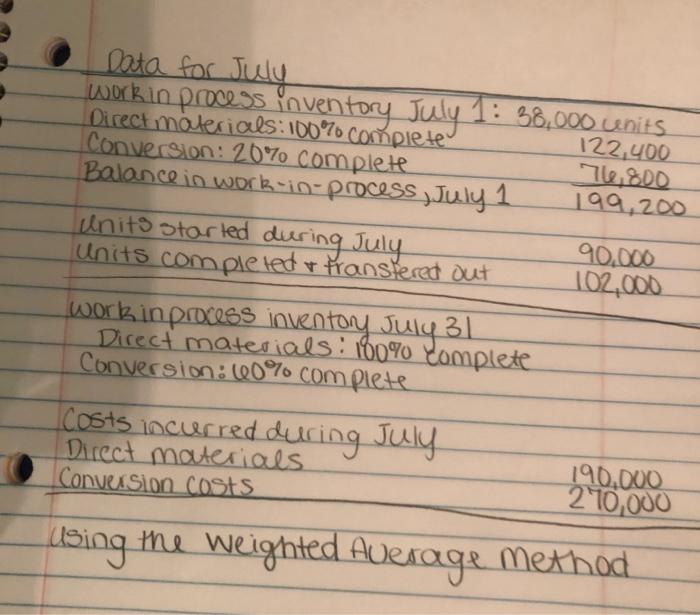 Data for July
Work in process inventory July 1: 38,000 units
Direct materials: 100% complete 122,400
Conversion: 20% complete 76,800
Balance in work-in-process, July 1 199,200
Units started during July 90,000
Units completed & transfered out 102,000
Work in process inventory July 31
Direct materials: 100% complete
Conversion: 60% complete
Costs incurred during July
Direct materials 190,000
Conversion costs 270,000
Using the Weighted Average Method